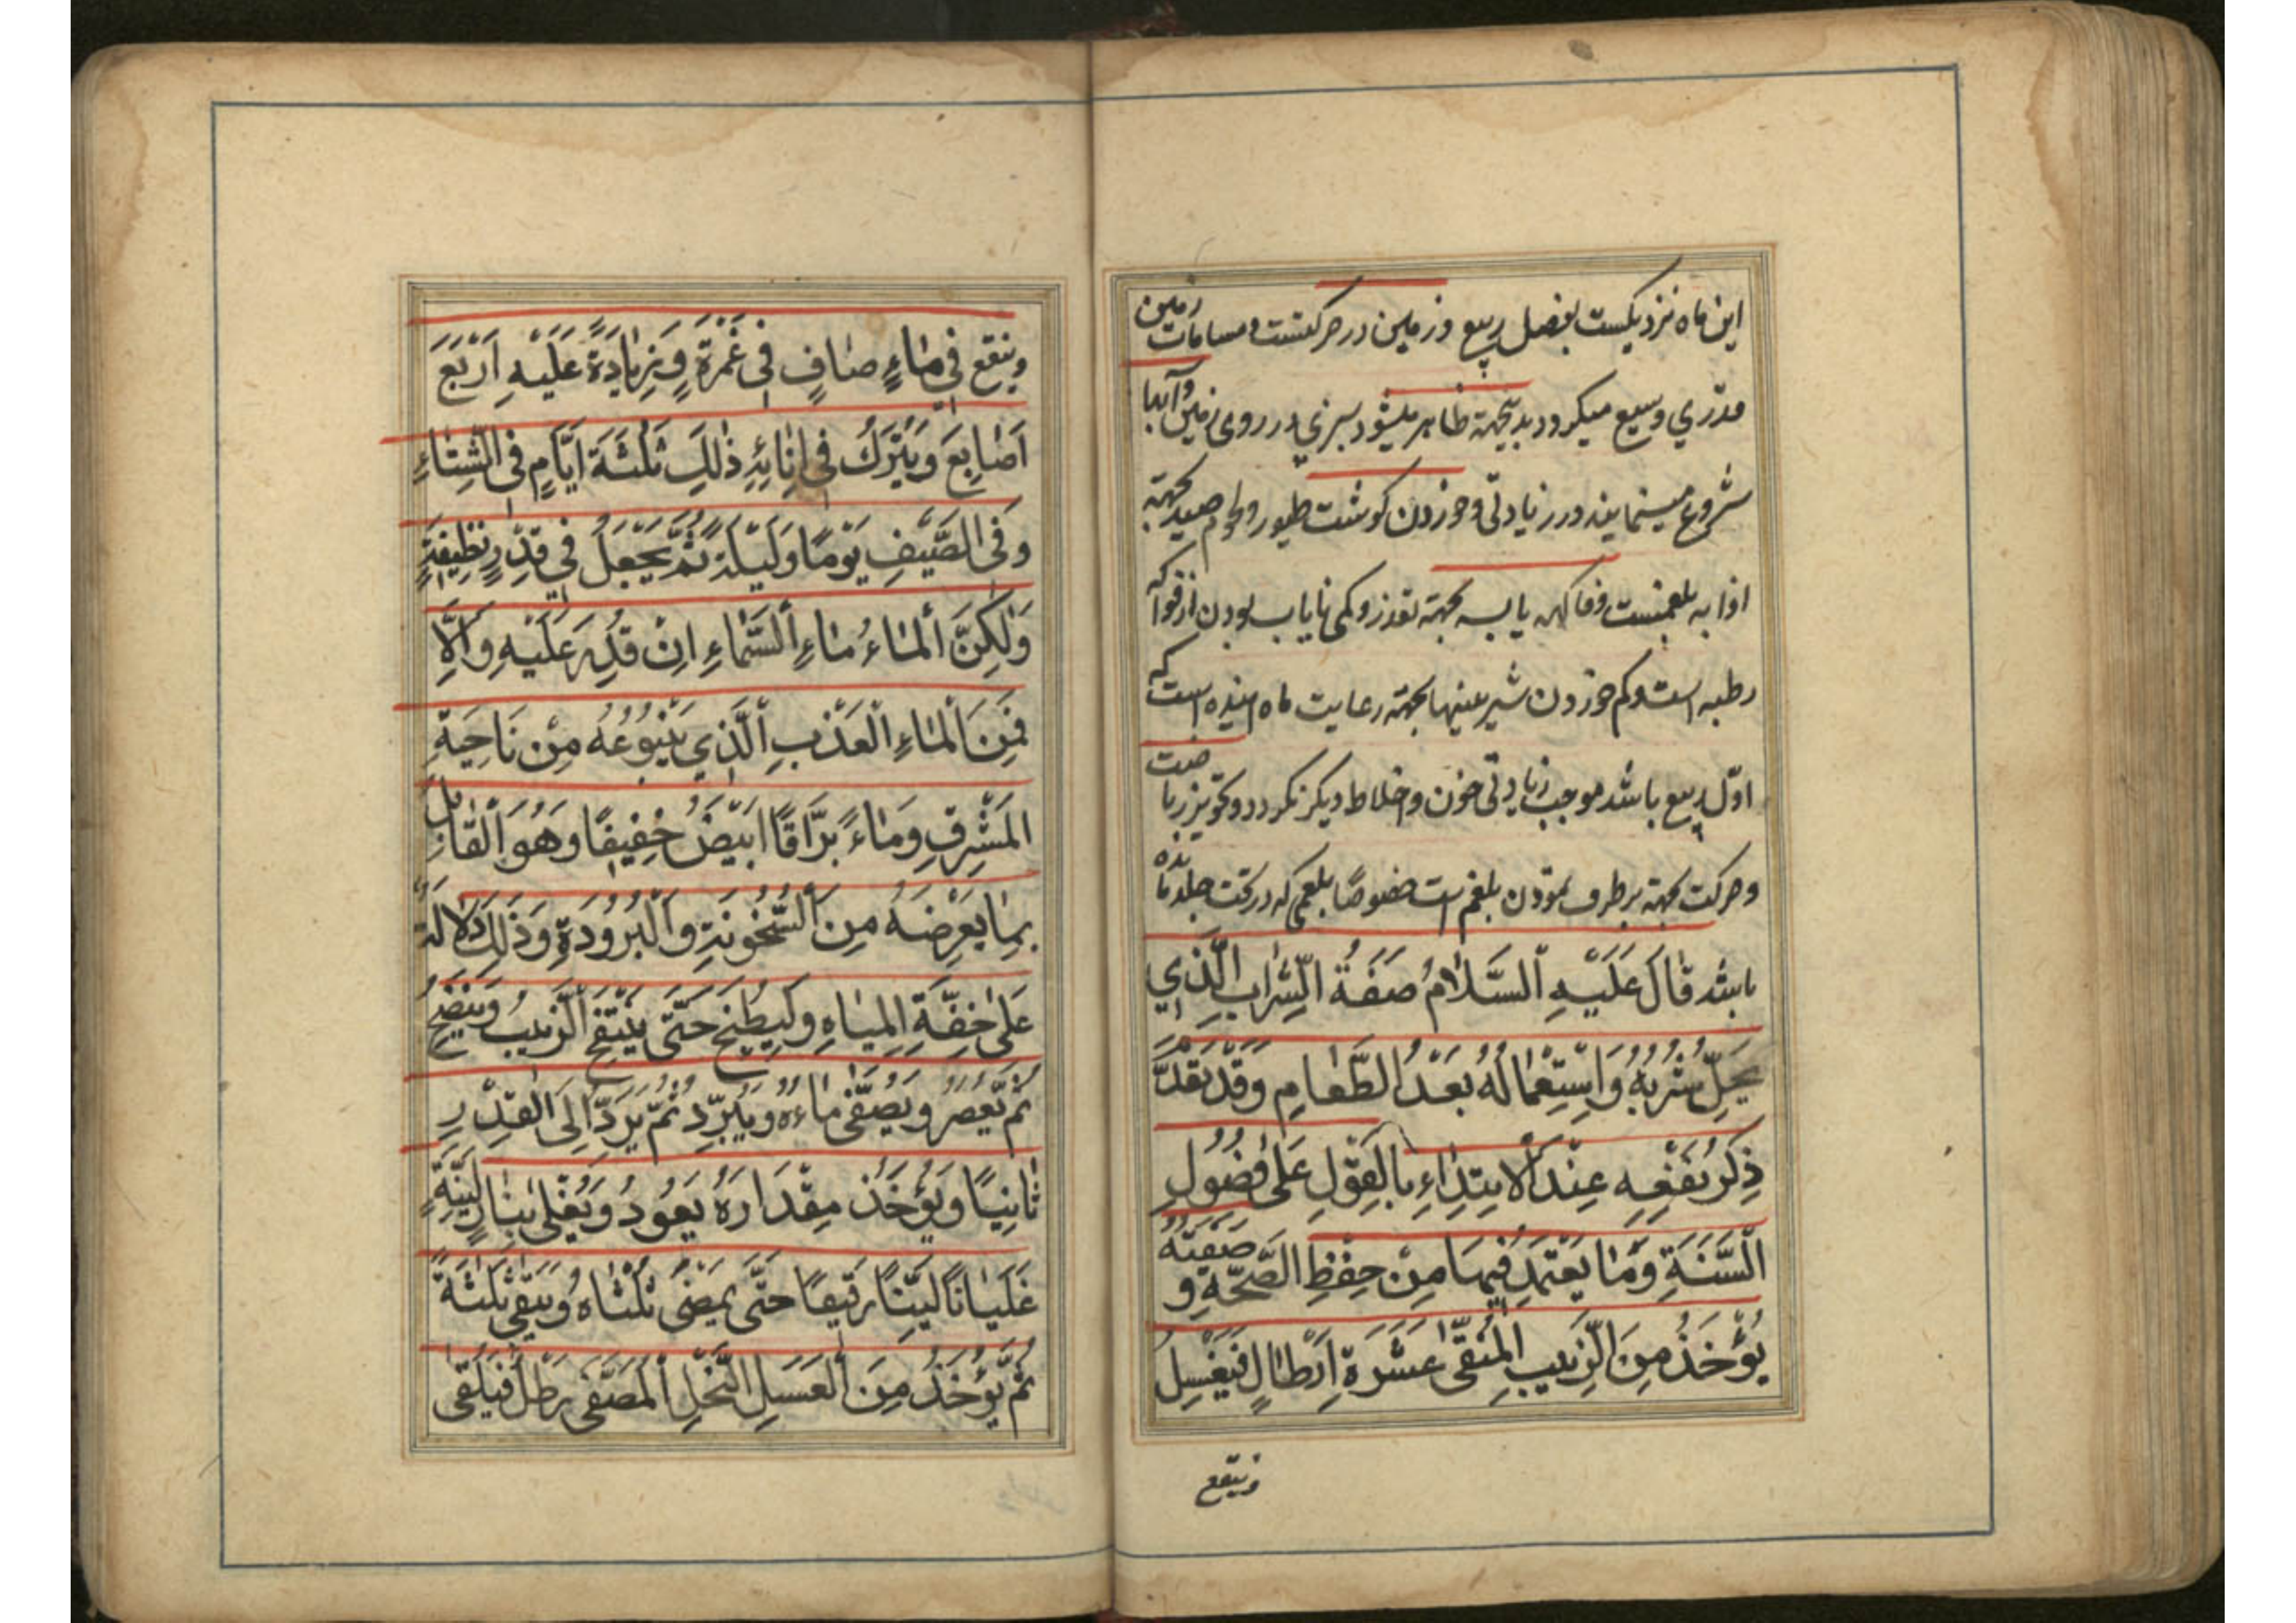 این ماه نزدیکست بفصل ربیع و زمین در حرکتست و مسامات زمین
قدری وسیع میکردد بدینجهة ظاهر میشود سبزی در روی زمین و آبها
شروع مینمایند در زیادتی و خوردن کوشت طیور و لحوم صید بجهة
اذابه بلغمست وفاکهه یابسه بجهة تعذر و کمی نایاب بودن از فواکه
رطبه است و کم خوردن شیرینیها بجهة رعایت ماه آینده است که
اوّل ربیع باشد موجب زیادتی خون و اخلاط دیکر نکردد و تجویز ریاضت
وحرکت بجهة برطرف نمودن بلغم است خصوصًا بلغمی که در تحت جلد مانده
باشد قَالَ عَلَيْهِ السَّلَامُ صِفَةُ الشَّرابِ الَّذِي
يَحِلُّ شُرْبُهُ وَاسْتِعْمَالُهُ بَعْدَ الطَّعَامِ وَقَدْ تَقَدَّمَ
ذِكْرُ نَفْعِهِ عِنْدَ الابْتِدَاءِ بِالْقَوْلِ عَلَى فُصُولِ
السَّنَةِ وَمَا يُعْتَمَدُ فِيهَا مِنْ حِفْظِ الصِّحَّةِ وَ صِفَتُهُ
يُؤْخَذُ مِنَ الزَّبِيبِ الْمُنَقَّى عَشَرَةُ اَرْطَالٍ فَيُغْسَلُ
وینقع
وينقع فِي مَاءٍ صَافٍ فِي غَمْرَةٍ وَزِيَادَةً عَلَيْهِ اَرْبَعَ
اَصَابِعَ وَيُتْرَكُ فِي اِنَائِهِ ذٰلِكَ ثَلٰثَةَ اَيَّامٍ فِي الشِّتَاءِ
وَفِي الصَّيْفِ يَوْمًا وَلَيْلَةً ثُمَّ يُجْعَلُ فِي قِدْرٍ نَظِيفَةٍ
وَلٰكِنَّ الْمَاءُ مَاءِ السَّمَاءِ اِنْ قُدِرَ عَلَيْهِ وَاِلَّا
فَمِنَ الْمَاءِ الْعَذْبِ الَّذِي يَنْبُوعُهُ مِنْ نَاحِيَةِ
الْمَشْرِقِ وَمَاءً بَرَّاقًا اَبْيَضَ خَفِيفًا وَهُوَ الْقَابِلُ
بِمَا يَعْرِضُهُ مِنَ السُّخُونَةِ وَالْبُرُودَةِ وَذٰلِكَ دَلَالَةٌ
عَلَى خِفَّةِ الْمِيَاهِ وَيُطْبَخُ حَتَّى يَنْتَفِخَ الزَّبِيبُ وَيَنْضَجُ
ثُمَّ يُعْصَرُ وَيُصَفَّى مَاءُهُ وَيُبَرَّدُ ثُمَّ يُرَدُّ اِلَى الْقِدْرِ
ثَانِيًا وَيُؤْخَذُ مِقْدَارَهُ بِعُودٍ وَيُغْلَى بِنَارٍ لَيِّنَةٍ
غَلَيَانًا لَيِّنًا رَقِيقًا حَتَّى يَمْضِيَ ثُلُثَاهُ وَيَبْقَى ثُلُثَهُ
ثُمَّ يُؤْخَذُ مِنَ الْعَسَلِ النَّحْلِ الْمُصَفَّى رِطْلٌ فَيُلْقَى